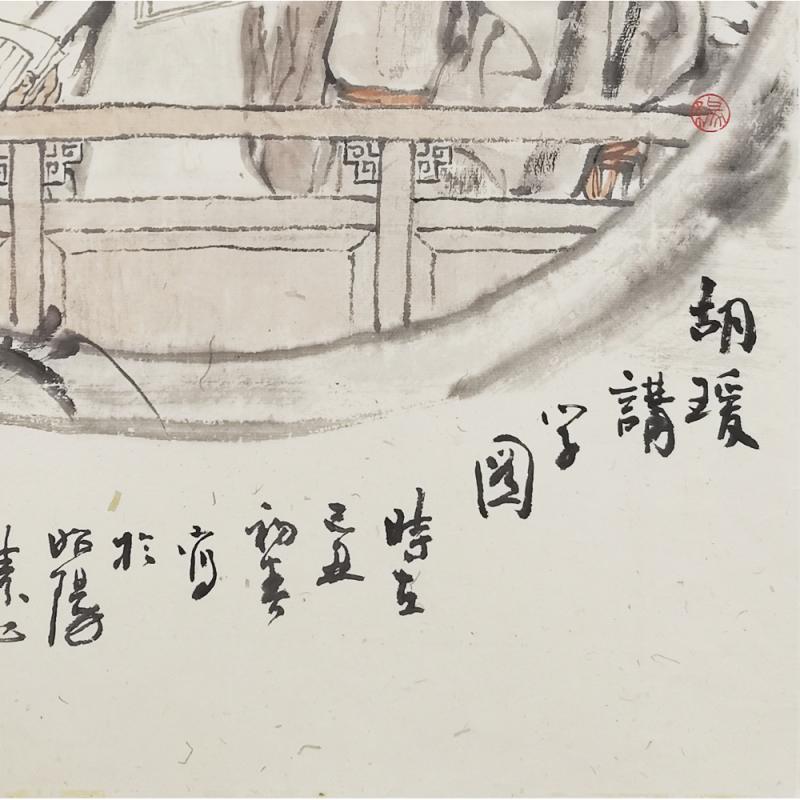 胡瑗
講
学
圖
時在
己丑
初春
寫
於
昭陽